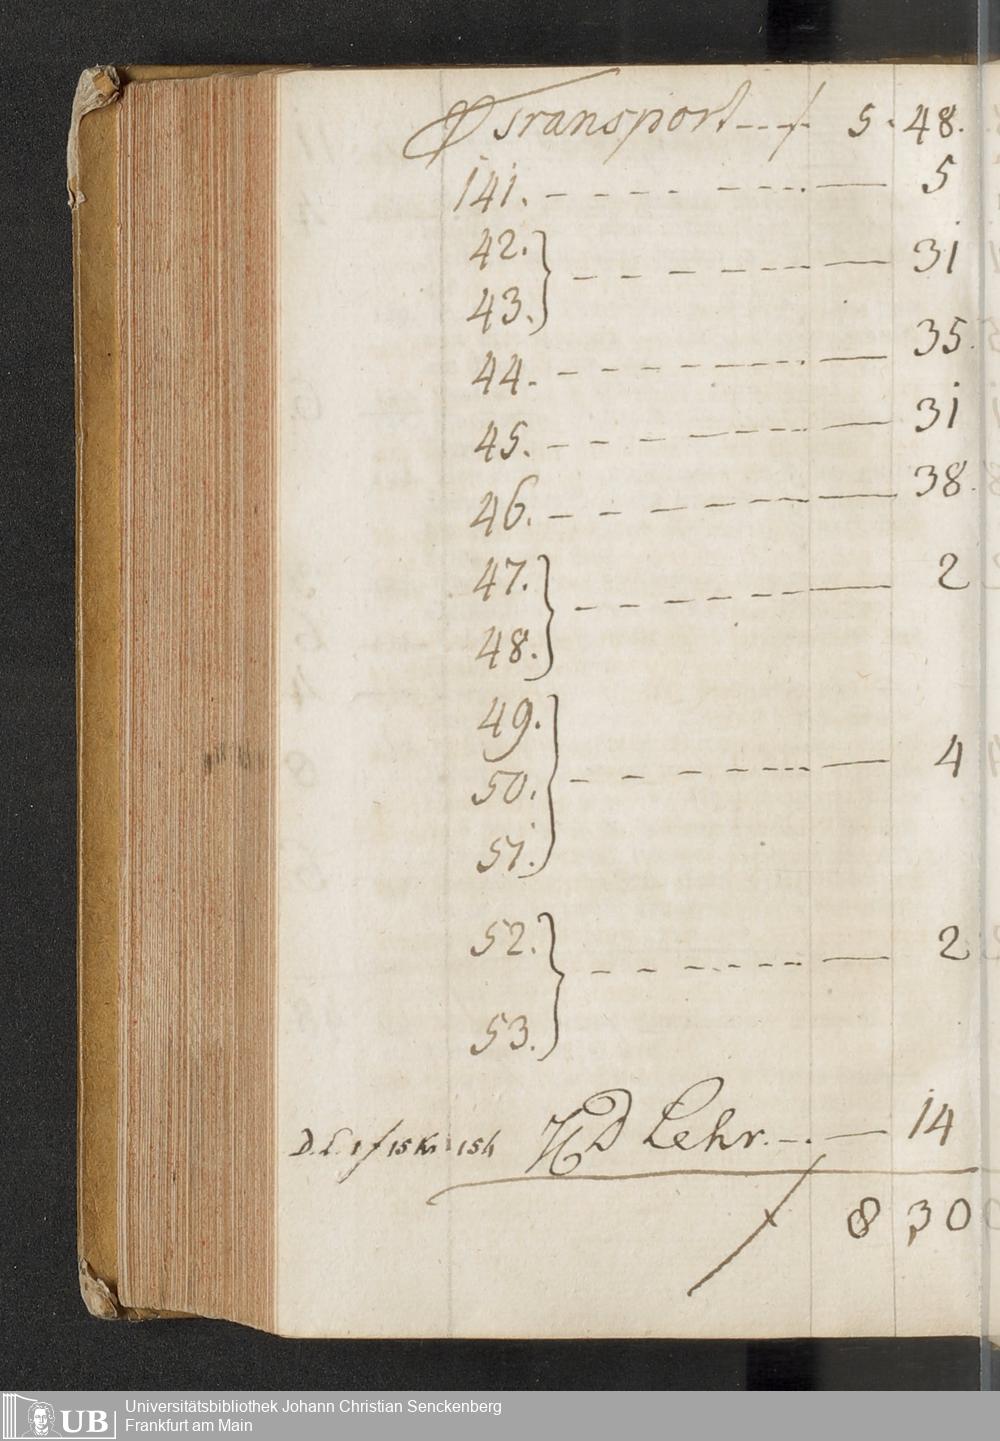 Transport f 5. 48.
141. 5
42.
31
43.
44. 35.
45. 31
46. 38.
47.
2
48.
49.
50. 4
51.
52.
2
53.
D. L. 1 f 15 Kr 154 HD Lehr. 14
f 8 30
UB Universitätsbibliothek Johann Christian Senckenberg
Frankfurt am Main